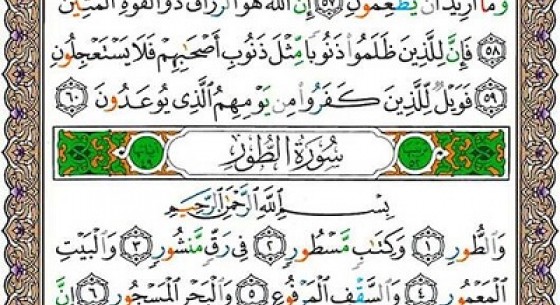 وَمَآ أُرِيدُ أَن يُطْعِمُونِ ٥٧ إِنَّ ٱللَّهَ هُوَ ٱلرَّزَّاقُ ذُو ٱلْقُوَّةِ ٱلْمَتِينُ
٥٨ فَإِنَّ لِلَّذِينَ ظَلَمُوا۟ ذَنُوبًا مِّثْلَ ذَنُوبِ أَصْحَٰبِهِمْ فَلَا يَسْتَعْجِلُونِ
٥٩ فَوَيْلٌ لِّلَّذِينَ كَفَرُوا۟ مِن يَوْمِهِمُ ٱلَّذِى يُوعَدُونَ ٦٠
سُورَةُ الطُّورِ
بِسْمِ ٱللَّهِ ٱلرَّحْمَٰنِ ٱلرَّحِيمِ
وَٱلطُّورِ ١ وَكِتَٰبٍ مَّسْطُورٍ ٢ فِى رَقٍّ مَّنشُورٍ ٣ وَٱلْبَيْتِ
ٱلْمَعْمُورِ ٤ وَٱلسَّقْفِ ٱلْمَرْفُوعِ ٥ وَٱلْبَحْرِ ٱلْمَسْجُورِ ٦ إِنَّ